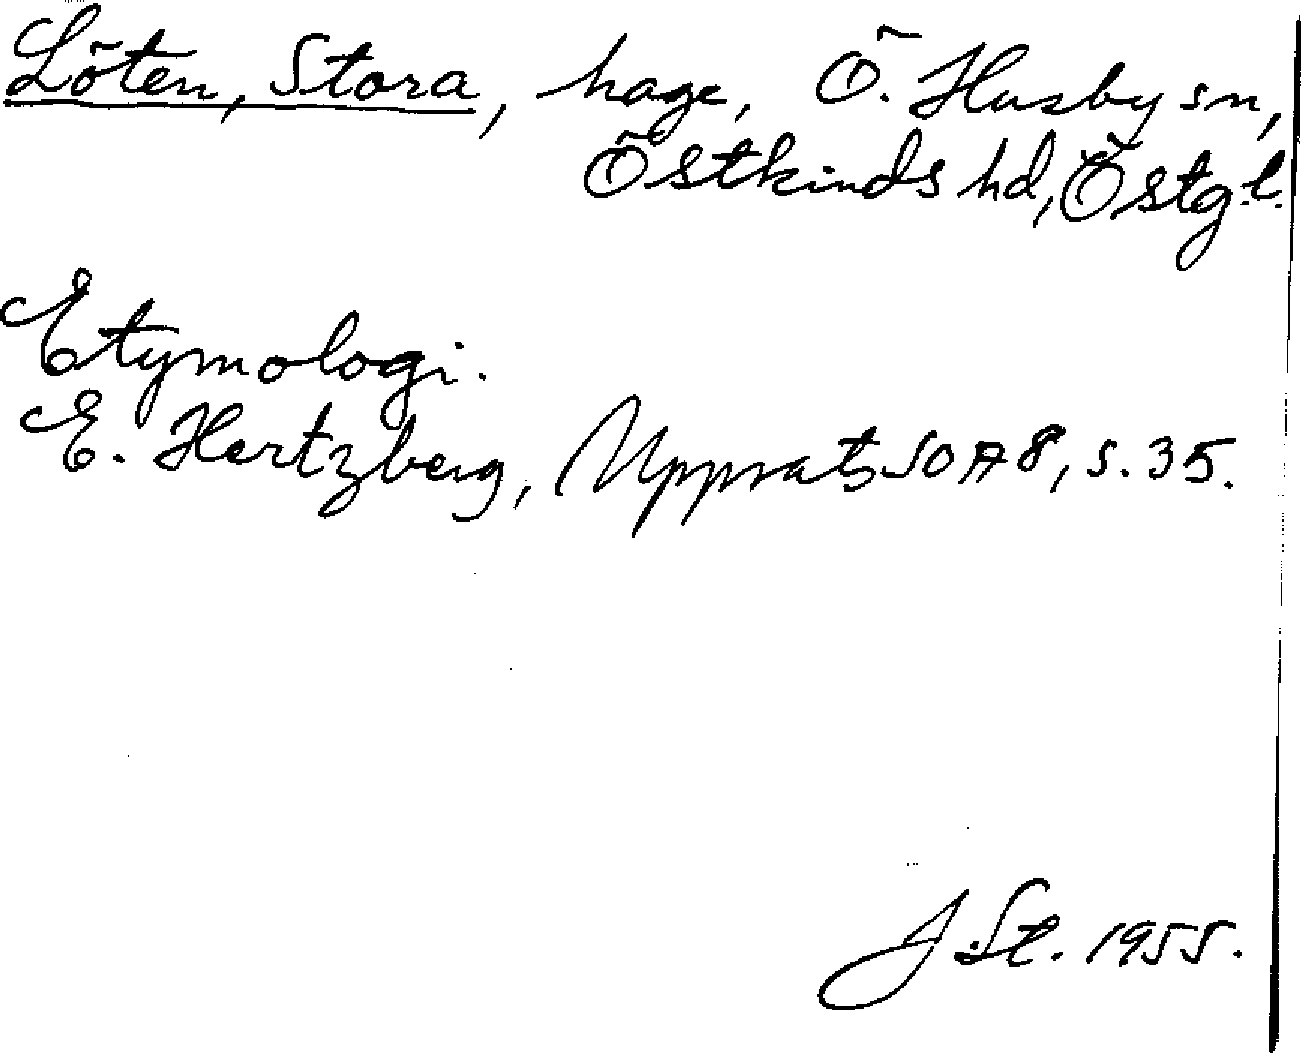 Löten, Stora, hage, Ö. Husby sn,
Östkinds hd, Östg.l.
Etymologi.
E. Hertzberg, Uppsats SOA 8, s. 35.
J. St. 1955.